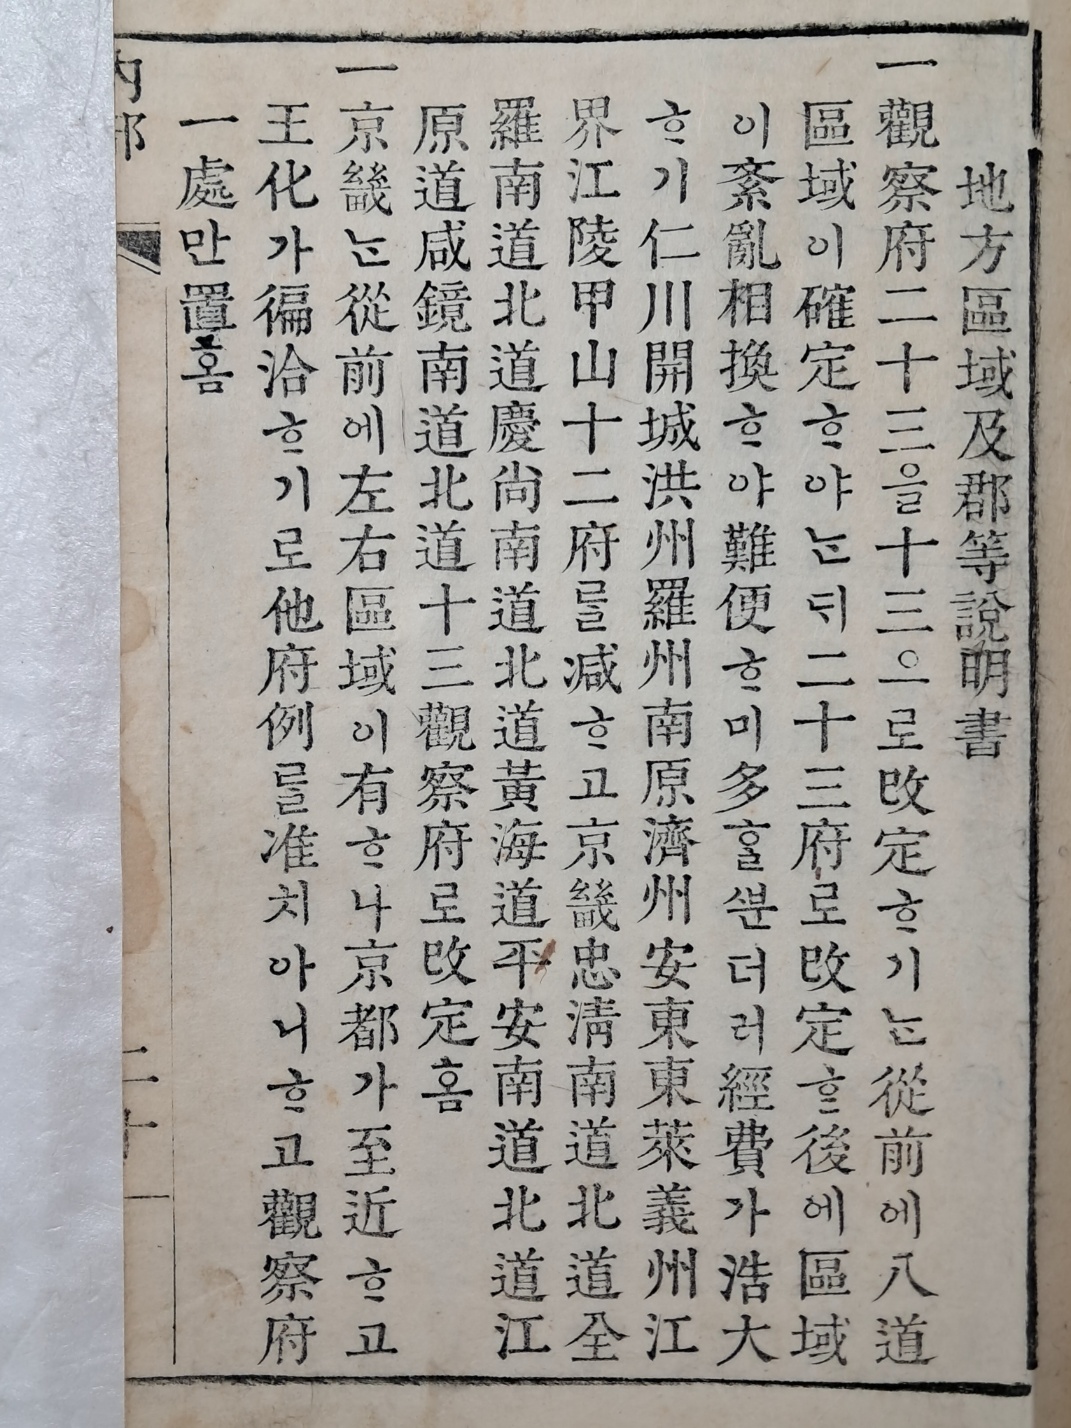 地方區域及郡等說明書
一觀察府二十三을十三으로改定ᄒᆞ기ᄂᆞᆫ從前에八道
區域이確定ᄒᆞ야ᄂᆞᆫᄃᆡ二十三府로改定ᄒᆞᆫ後에區域
이紊亂相換ᄒᆞ야難便ᄒᆞ미多ᄒᆞᆯᄲᅮᆫ더러經費가浩大
ᄒᆞ기仁川開城洪州羅州南原濟州安東東萊義州江
界江陵甲山十二府를減ᄒᆞ고京畿忠淸南道北道全
羅南道北道慶尙南道北道黃海道平安南道北道江
原道咸鏡南道北道十三觀察府로改定홈
一京畿ᄂᆞᆫ從前에左右區域이有ᄒᆞ나京都가至近ᄒᆞ고
王化가徧洽ᄒᆞ기로他府例를准치아니ᄒᆞ고觀察府
一處만置홈
內部
二十一